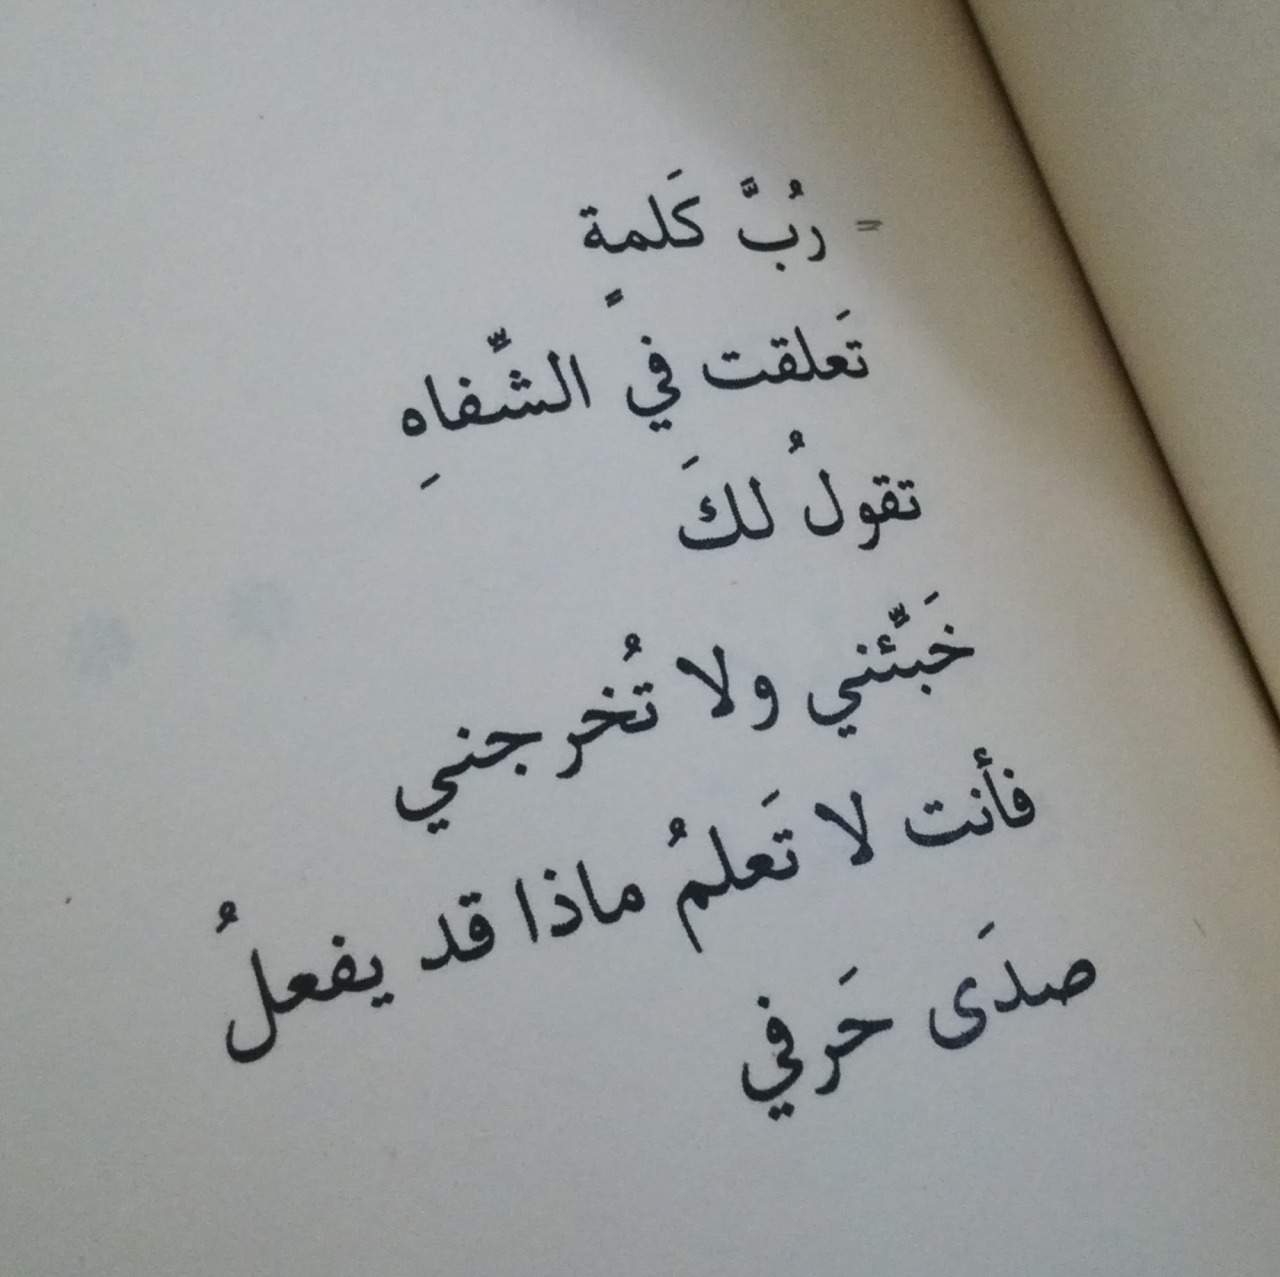 = رُبَّ كَلمةٍ
تَعلقت في الشِّفاهِ
تقولُ لكَ
خَبِّئني ولا تُخرجني
فأنت لا تَعلمُ ماذا قد يفعلُ
صدَى حَرفي